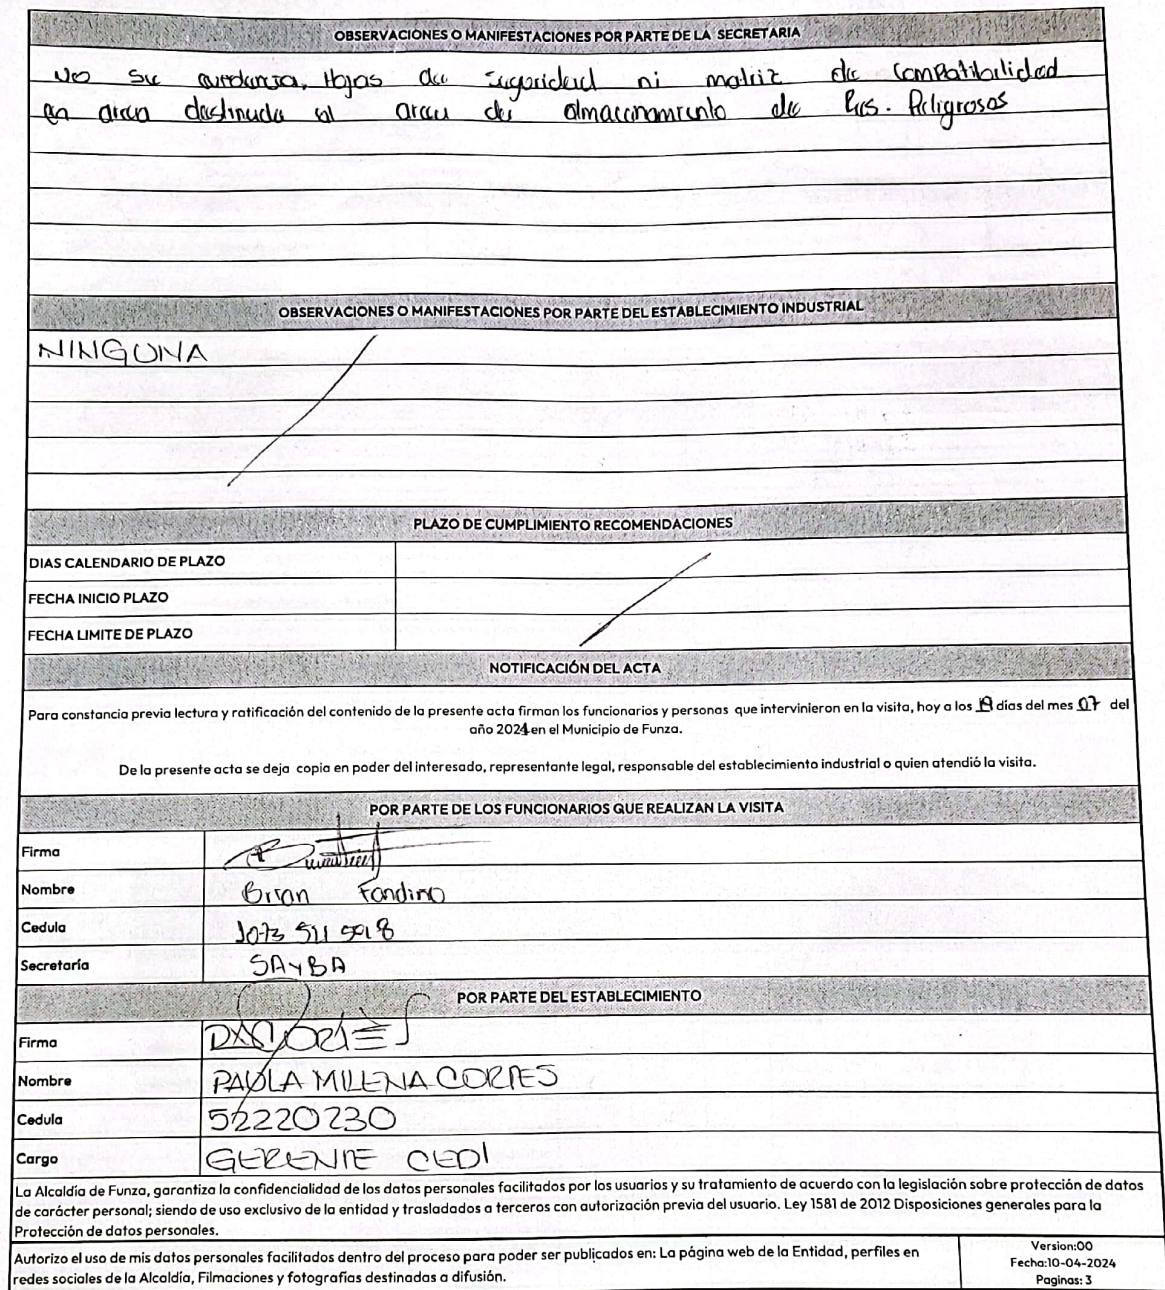 OBSERVACIONES O MANIFESTACIONES POR PARTE DE LA SECRETARIA
No se evidencia, Hojas de seguridad ni matriz de Compatibilidad
en area destinada al area de almacenamiento de Res. Peligrosos
OBSERVACIONES O MANIFESTACIONES POR PARTE DEL ESTABLECIMIENTO INDUSTRIAL
NINGUNA
PLAZO DE CUMPLIMIENTO RECOMENDACIONES
DIAS CALENDARIO DE PLAZO
FECHA INICIO PLAZO
FECHA LIMITE DE PLAZO
NOTIFICACIÓN DEL ACTA
Para constancia previa lectura y ratificación del contenido de la presente acta firman los funcionarios y personas que intervinieron en la visita, hoy a los 19 dias del mes 07 del
año 2024 en el Municipio de Funza.
De la presente acta se deja copia en poder del interesado, representante legal, responsable del establecimiento industrial o quien atendió la visita.
POR PARTE DE LOS FUNCIONARIOS QUE REALIZAN LA VISITA
Firma
Nombre Brian Fandino
Cedula 1073 511 5918
Secretaría SAYBA
POR PARTE DEL ESTABLECIMIENTO
Firma
Nombre PAULA MILENA CORTES
Cedula 52220230
Cargo GERENTE CEDI
La Alcaldía de Funza, garantiza la confidencialidad de los datos personales facilitados por los usuarios y su tratamiento de acuerdo con la legislación sobre protección de datos
de carácter personal; siendo de uso exclusivo de la entidad y trasladados a terceros con autorización previa del usuario. Ley 1581 de 2012 Disposiciones generales para la
Protección de datos personales.
Autorizo el uso de mis datos personales facilitados dentro del proceso para poder ser publicados en: La página web de la Entidad, perfiles en
redes sociales de la Alcaldía, Filmaciones y fotografías destinadas a difusión.
Version:00
Fecha:10-04-2024
Paginas: 3